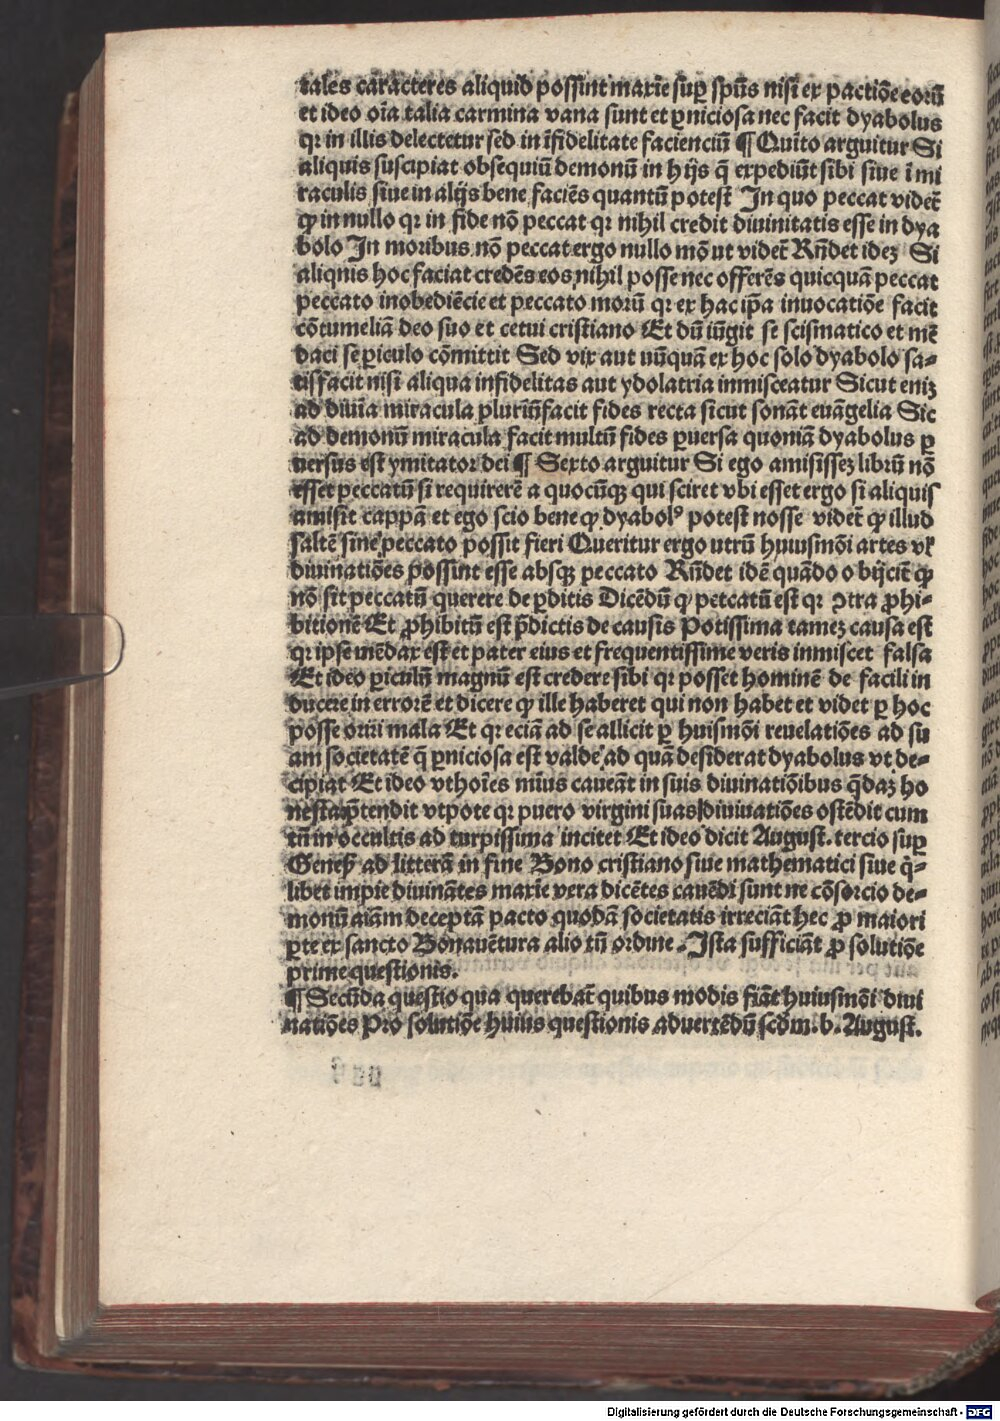 tales caracteres aliquid possint maxīe suꝑ spūs nisi ex pactiōe eorū
et ideo oīa talia carmina vana sunt et ꝑniciosa nec facit dyabolus
qꝛ in illis delectetur sed in īfidelitate facienciū ¶ Quīto arguitur Si
aliquis suscipiat obsequiū demonū in hijs q̄ expediūt sibi siue ī mi
raculis siue in alijs bene faciēs quantū potest In quo peccat videt̄
ꝙ in nullo qꝛ in fide nō peccat qꝛ nihil credit diuinitatis esse in dya
bolo In moribus nō peccat ergo nullo mō ut videt̄ Rn̄det ideꝫ Si
aliqnis hoc faciat credēs eos nihil posse nec offerēs quicquā peccat
peccato inobediēcie et peccato morū qꝛ ex hac ip̄a inuocatiōe facit
cōtumeliā deo suo et cetui cristiano Et dū iūgit se scismatico et mē
daci se ꝑiculo cōmittit Sed vix aut nūquā ex hoc solo dyabolo sa⸗
tisfacit nisi aliqua infidelitas aut ydolatria inmisceatur Sicut eniꝫ
ad diuīa miracula plurimū facit fides recta sicut sonāt euāgelia Sic
ad demonū miracula facit multū fides ꝑuersa quoniā dyabolus ꝑ
uersus est ymitator dei ¶ Sexto arguitur Si ego amisisseꝫ librū nō
esset peccatū si requirerē a quocūqꝫ qui sciret vbi esset ergo si aliquis
amisit cappā et ego scio bene ꝙ dyabolꝰ potest nosse videt̄ ꝙ illud
saltē sine peccato possit fieri Queritur ergo utrū huiusmōi artes vl̓
diuinatiōes possint esse absqꝫ peccato Rn̄det idē quādo obijcit̄ ꝙ
nō sit peccatū querere de ꝑditis Dicēdū ꝙ petcatū est qꝛ ↄtra ꝓhi⸗
bitionē Et ꝓhibitū est p̄dictis de causis Potissima tameꝫ causa est
qꝛ ipse mēdax est et pater eius et frequentissime veris inmiscet falsa
Et ideo ꝑiculū magnū est credere sibi qꝛ posset hominē de facili in
ducere in errorē et dicere ꝙ ille haberet qui non habet et videt ꝑ hoc
posse oriri mala Et qꝛ eciā ad se allicit ꝑ huismōi reuelatiōes ad su
am societatē q̄ ꝑniciosa est valde ad quā desiderat dyabolus vt de⸗
cipiat Et ideo vt hoīes min̄us caueāt in suis diuinatiōibus q̄daꝫ ho
nesta p̄tendit vtpote qꝛ puero virgini suas diuinatiōes ostēdit cum
tn̄ in occultis ad turpissima incitet Et ideo dicit August. tercio suꝑ
Genes̄ ad litterā in fine Bono cristiano siue mathematici siue q̄⸗
libet impie diuinātes maxīe vera dicētes cauēdi sunt ne cōsorcio de⸗
monū aīam deceptā pacto quodā societatis irreciāt hec ꝓ maiori
ꝑte ex sancto Bonauētura alio tn̄ ordine . Ista sufficiāt ꝓ solutiōe
prime questionis.
¶ Secūda questio qua querebat̄ quibus modis fiāt huiusmōi diui
natiōes Pro solutiōe huius questionis aduertēdū scd̄m . b . August.